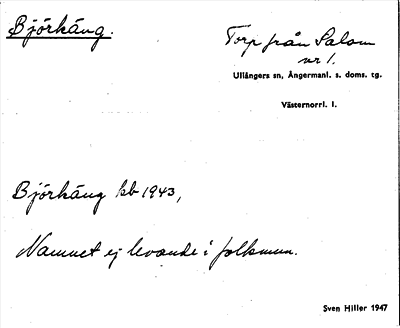 Björkäng.
Torp från Salom
nr 1.
Ullångers sn, Ångermanl. s. doms. tg.
Västernorrl. l.
Björkäng kb 1943,
Namnet ej levande i folkmun.
Sven Hiller 1947